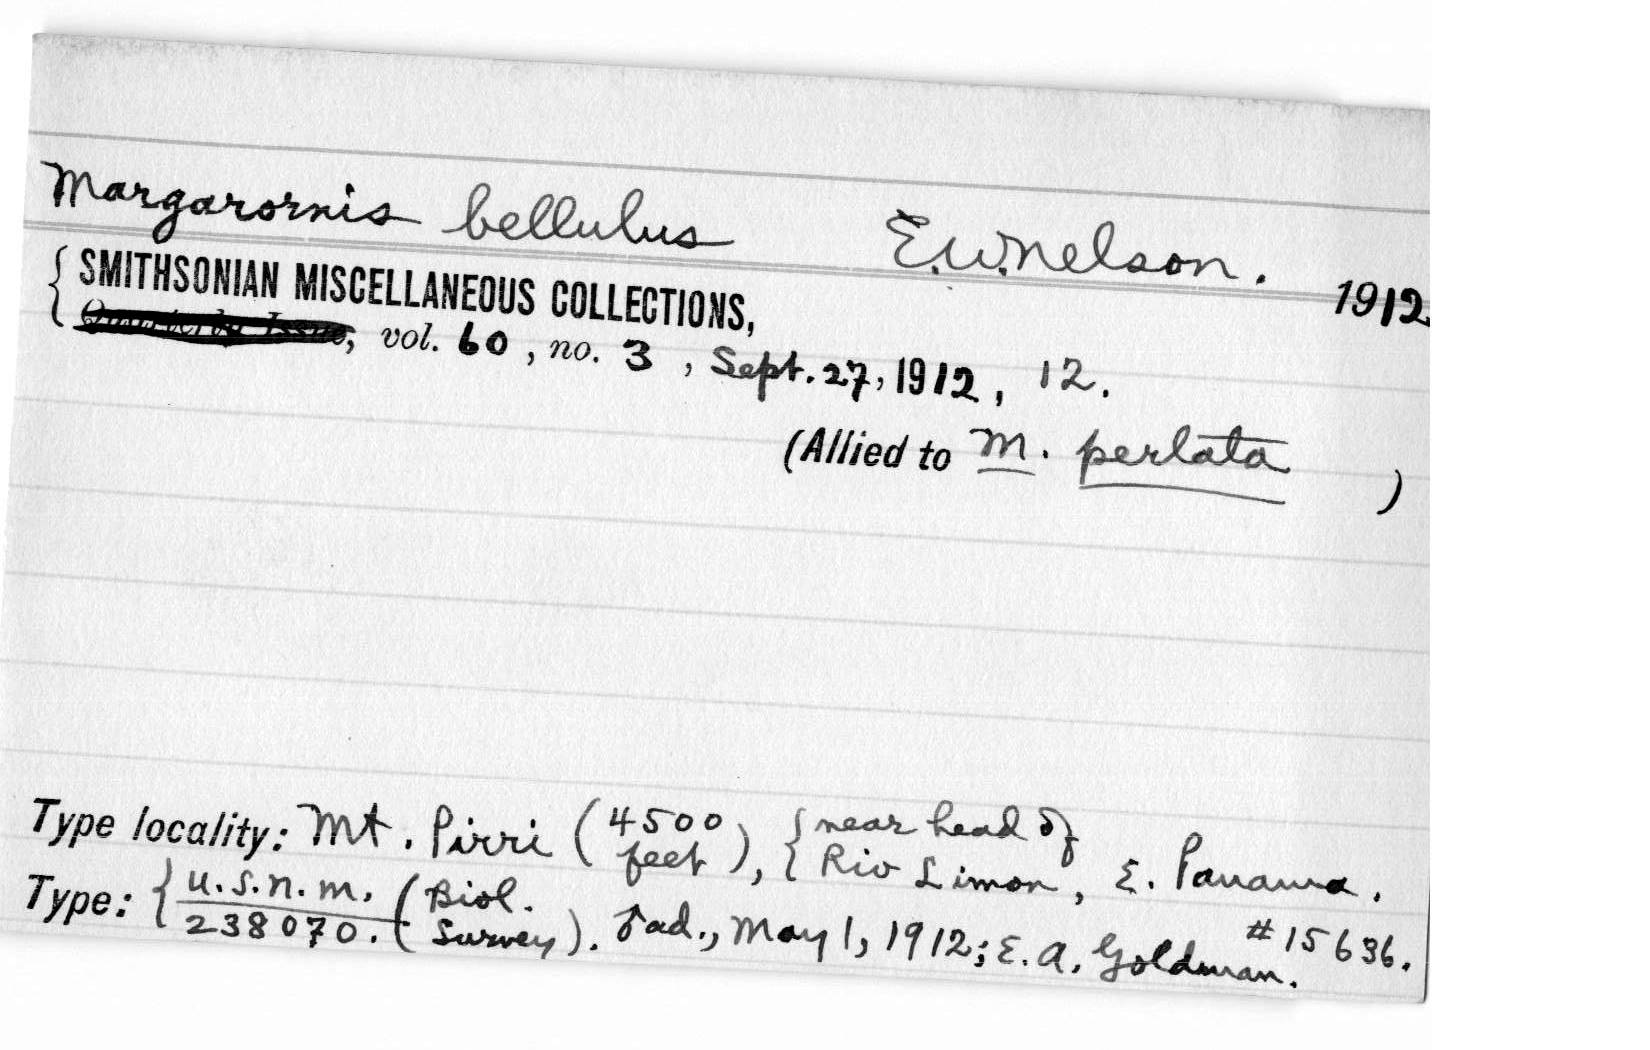 Margarornis bellulus E.W. Nelson. 1912
{ SMITHSONIAN MISCELLANEOUS COLLECTIONS,
Quarterly Issue, vol. 60, no. 3, Sept. 27, 1912, 12.
(Allied to M. perlata )
Type locality: Mt. Pirri (4500 feet), { near head of Rio Limon, E. Panama.
Type: { U.S.N.M. 238070. (Biol. Survey). ♂ad., May 1, 1912; E. A. Goldman. #15636.